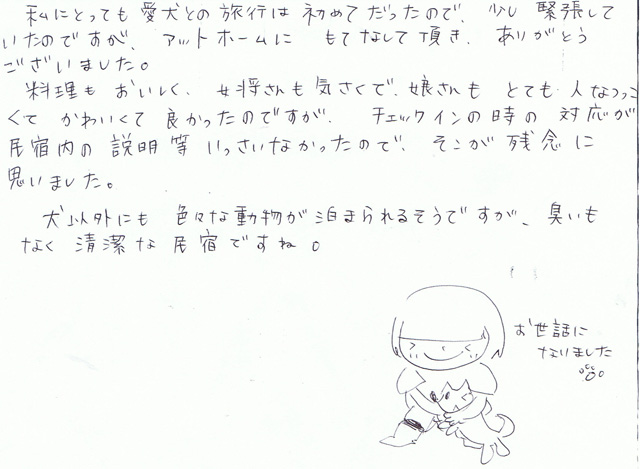 私にとっても愛犬との旅行は初めてだったので、少し緊張して
いたのですが、アットホームにもてなして頂き、ありがとう
ございました。
料理もおいしく、女将さんも気さくで、娘さんもとても人なつっこ
くてかわいくて良かったのですが、チェックインの時の対応が
民宿内の説明等いっさいなかったので、そこが残念に
思いました。
犬以外にも色々な動物が泊まられるそうですが、臭いも
なく清潔な民宿ですね。
お世話に
なりました